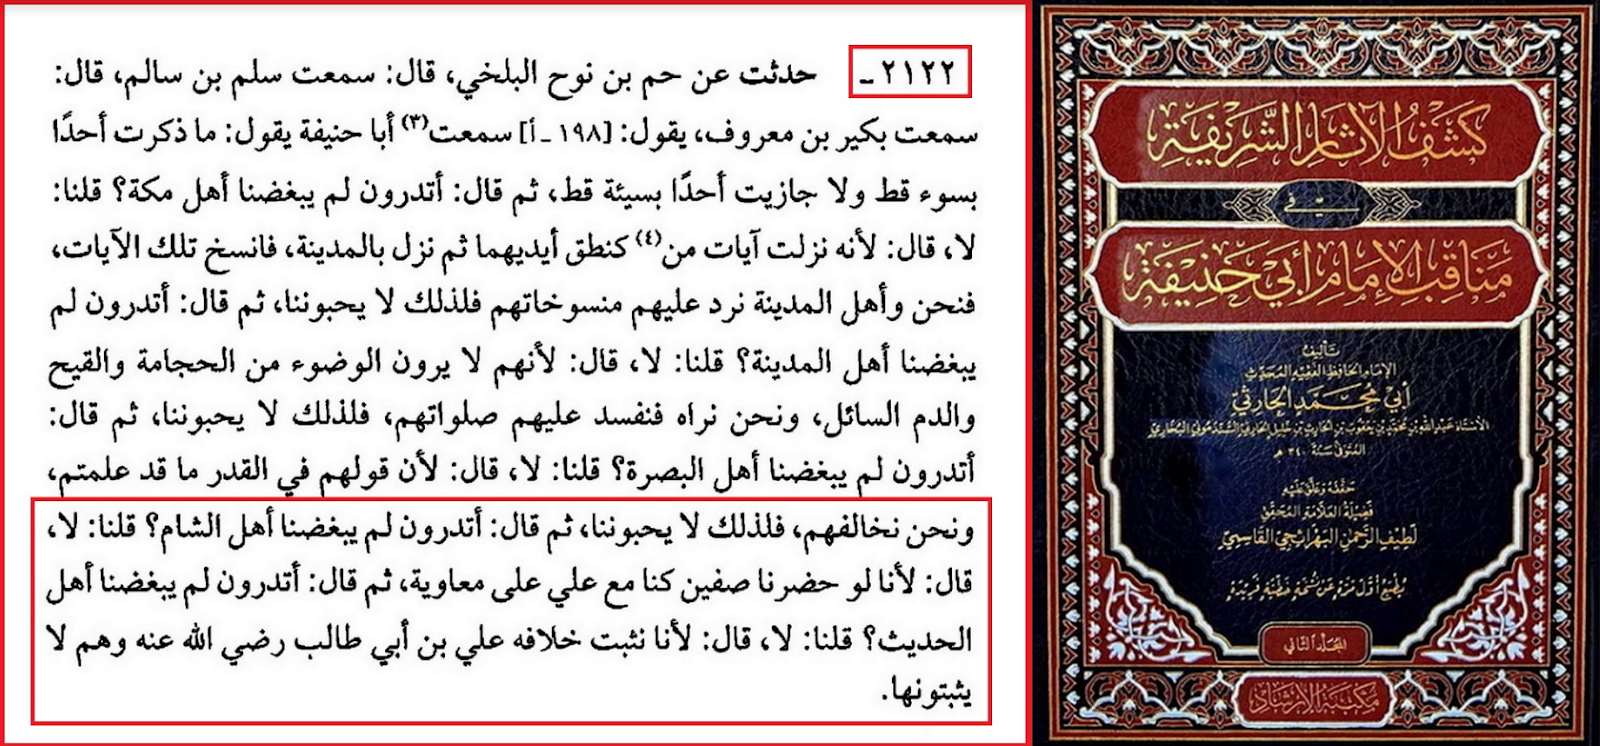 ٢١٢٢ـ حدثت عن حم بن نوح البلخي، قال: سمعت سلم بن سالم، قال:
سمعت بكير بن معروف، يقول: [١٩٨ ـ أ] سمعت(٣) أبا حنيفة يقول: ما ذكرت أحدًا
بسوء قط ولا جازيت أحدًا بسيئة قط، ثم قال: أتدرون لم يبغضنا أهل مكة؟ قلنا:
لا، قال: لأنه نزلت آيات من(٤) كنطق أيديهما ثم نزل بالمدينة، فانسخ تلك الآيات،
فنحن وأهل المدينة نرد عليهم منسوخاتهم فلذلك لا يحبوننا، ثم قال: أتدرون لم
يبغضنا أهل المدينة؟ قلنا: لا، قال: لأنهم لا يرون الوضوء من الحجامة والقيح
والدم السائل، ونحن نراه فنفسد عليهم صلواتهم، فلذلك لا يحبوننا، ثم قال:
أتدرون لم يبغضنا أهل البصرة؟ قلنا: لا، قال: لأن قولهم في القدر ما قد علمتم،
ونحن نخالفهم، فلذلك لا يحبوننا، ثم قال: أتدرون لم يبغضنا أهل الشام؟ قلنا: لا،
قال: لأنا لو حضرنا صفين كنا مع علي على معاوية، ثم قال: أتدرون لم يبغضنا أهل
الحديث؟ قلنا: لا، قال: لأنا نثبت خلافه علي بن أبي طالب رضي الله عنه وهم لا
يثبتونها.
كشف الآثار الشريفة
في
مناقب الإمام أبي حنيفة
تأليف
الإمام الحافظ الفقيه المحدث
أبي محمد الحارثي
الأستاذ عبد الله بن محمد بن يعقوب بن الحارث بن خليل الحارثي السبذموني البخاري
المتوفى سنة ٣٤٠ هـ
حققه وعلق عليه
فضيلة العلامة المحقق
لطيف الرحمن البهرائجي القاسمي
يطبع أول مرة عن نسخة خطية فريدة
المجلد الثاني
مكتبة الإرشاد